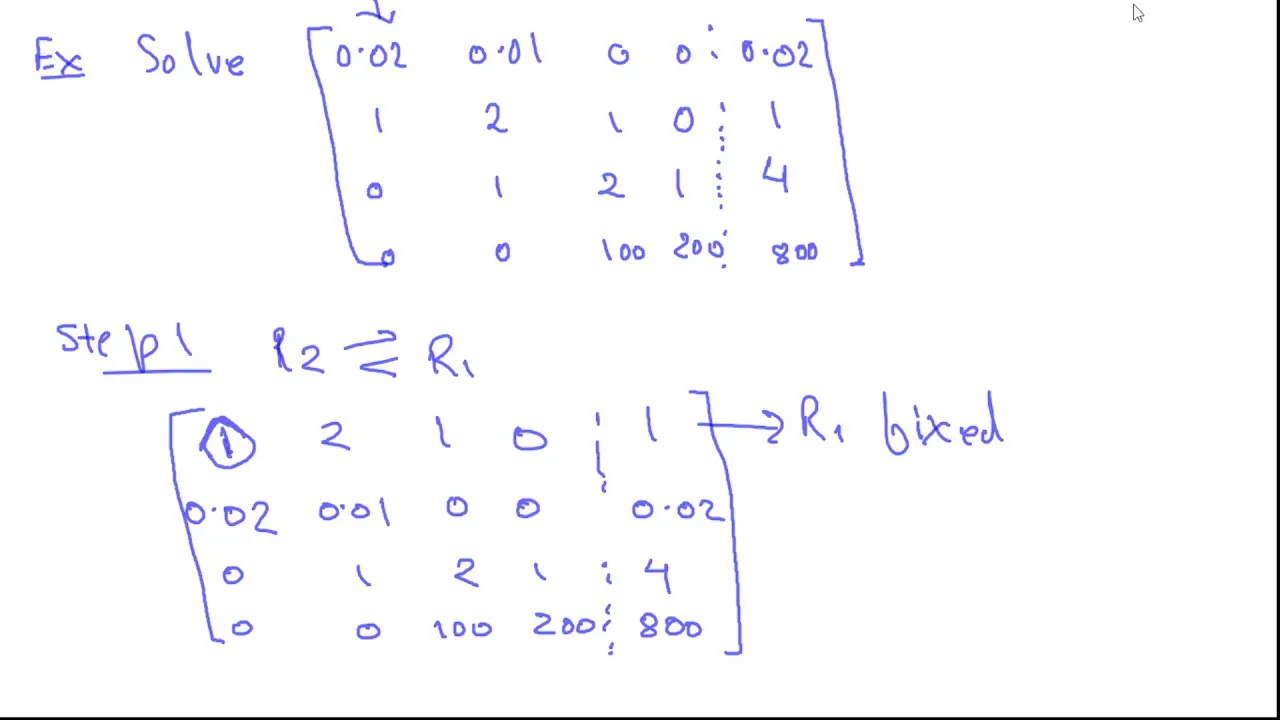 Ex Solve 0.02 0.01 0 0 : 0.02
1 2 1 0 : 1
0 1 2 1 : 4
0 0 100 200 : 800
Step 1 R2 ⇌ R1
1 2 1 0 : 1 → R1 fixed
0.02 0.01 0 0 : 0.02
0 1 2 1 : 4
0 0 100 200 : 800